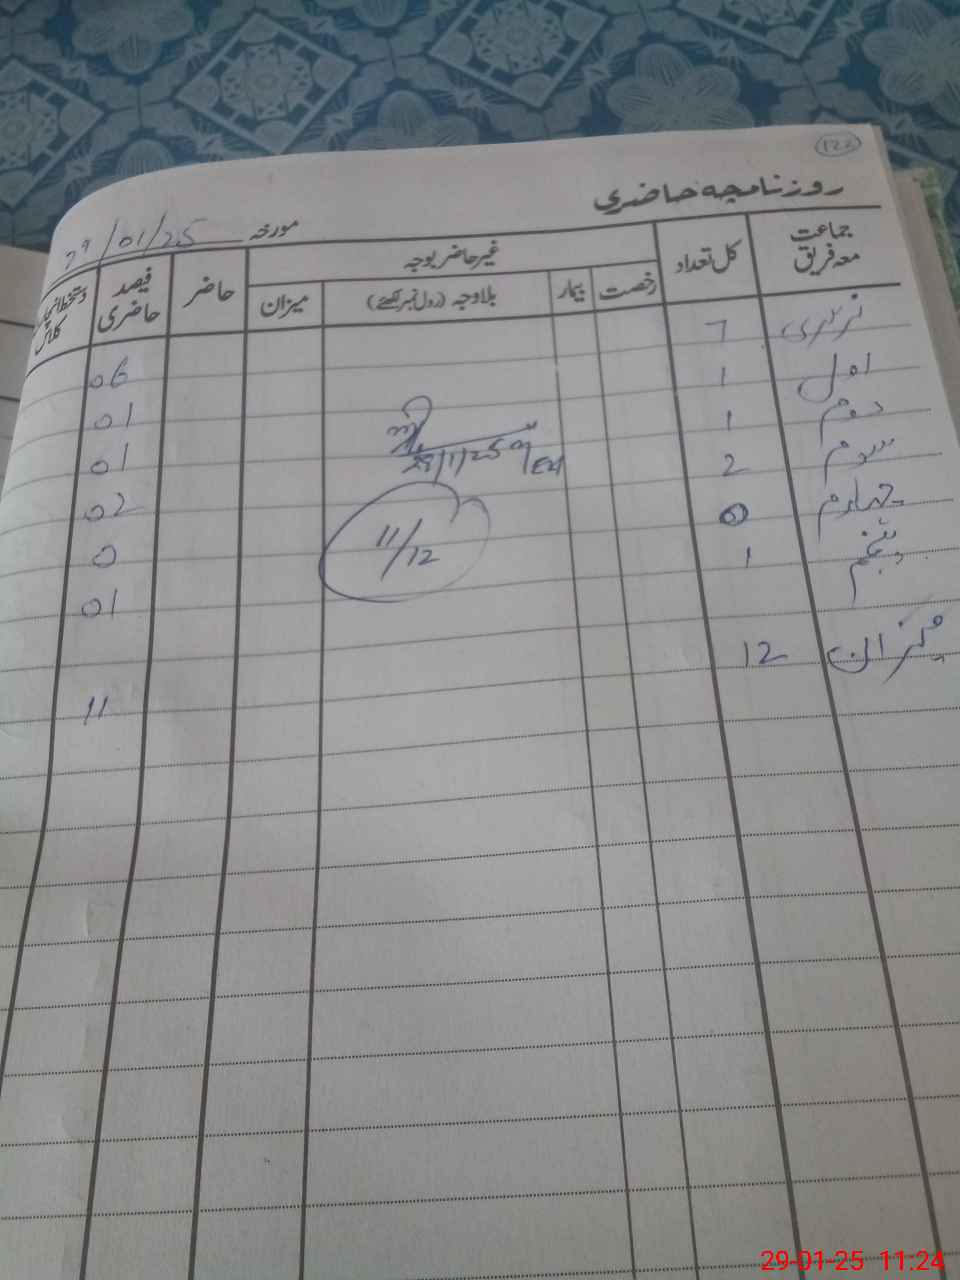 122
روزنامچہ حاضری
مورخہ 29/01/25
جماعت معہ فریق کل تعداد غیر حاضر بوجہ حاضر فیصد حاضری دستخط انچارج کلاس
رخصت بیمار بلاوجہ (رول نمبر لکھئے) میزان
نرسری 7 06
اول 1 01
دوم 1 01
سوم 2 02
چہارم 0 0
پنجم 1 01
میزان 12 11
29/1/25
11/12
29-01-25 11:24